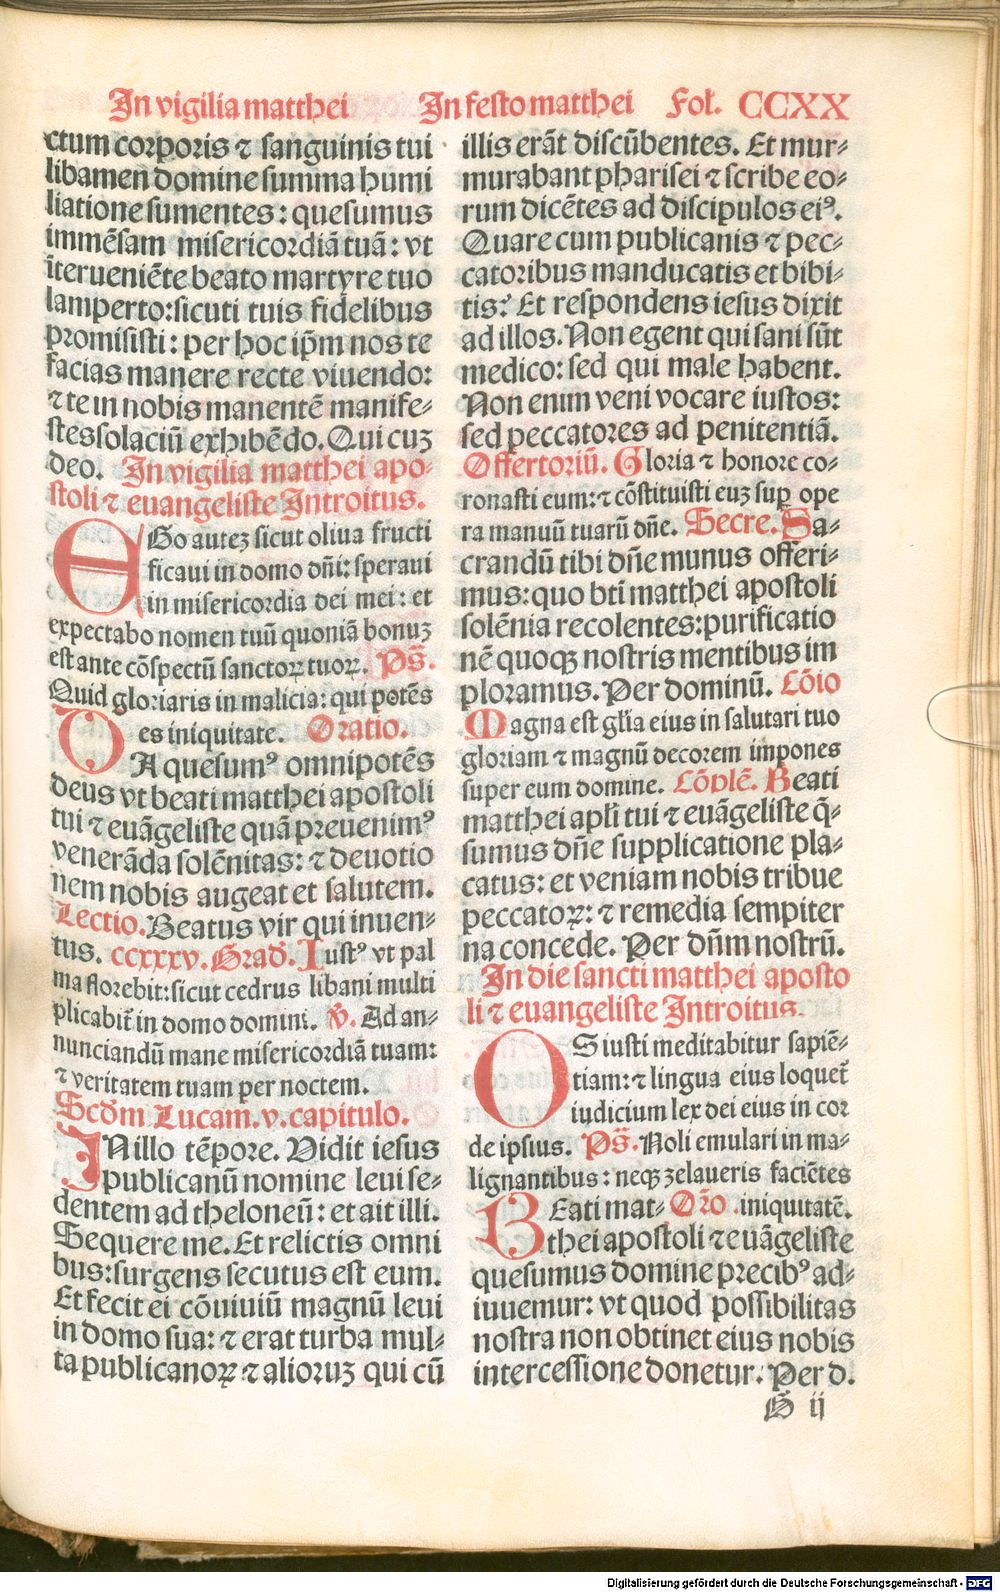 In vigilia matthei In festo matthei Fol. CCXX
ctum corporis ⁊ sanguinis tui
libamen domine summa humi
liatione sumentes: quesumus
immēsam misericordiā tuā: vt
īterueniēte beato martyre tuo
lamperto: sicuti tuis fidelibus
promisisti: per hoc ip̄m nos te
facias manere recte viuendo:
⁊ te in nobis manentē manife-
stes solaciū exhibēdo. Qui cuꝫ
deo. In vigilia matthei apo-
stoli ⁊ euangeliste Introitus.
EGo autez sicut oliua fructi
ficaui in domo dn̄i: speraui
in misericordia dei mei: et
expectabo nomen tuū quoniā bonuꝫ
est ante cōspectū sanctoꝝ tuoꝝ. Ps̄.
Quid gloriaris in malicia: qui potēs
es iniquitate. Oratio.
DA quesumꝰ omnipotēs
deus vt beati matthei apostoli
tui ⁊ euāgeliste quā preuenimꝰ
venerāda solēnitas: ⁊ deuotio
nem nobis augeat et salutem.
Lectio. Beatus vir qui inuen-
tus. ccxxxv. Grad̄. Iustꝰ vt pal
ma florebit: sicut cedrus libani multi
plicabit̄ in domo domini. v̄. Ad an-
nunciandū mane misericordiā tuam:
⁊ veritatem tuam per noctem.
Scd̄m Lucam. v. capitulo.
IN illo tēpore. Vidit iesus
publicanū nomine leui se-
dentem ad theloneū: et ait illi.
Sequere me. Et relictis omni
bus: surgens secutus est eum.
Et fecit ei cōuiuiū magnū leui
in domo sua: ⁊ erat turba mul-
ta publicanoꝝ ⁊ alioruꝫ qui cū
illis erāt discūbentes. Et mur-
murabant pharisei ⁊ scribe eo-
rum dicētes ad discipulos eiꝰ.
Quare cum publicanis ⁊ pec-
catoribus manducatis et bibi-
tis? Et respondens iesus dixit
ad illos. Non egent qui sani sūt
medico: sed qui male habent.
Non enim veni vocare iustos:
sed peccatores ad penitentiā.
Offertoriū. Gloria ⁊ honore co-
ronasti eum: ⁊ cōstituisti euꝫ suꝑ ope
ra manuū tuarū dn̄e. Secre. Sa-
crandū tibi dn̄e munus offeri-
mus: quo bt̄i matthei apostoli
solēnia recolentes: purificatio
nē quoqꝫ nostris mentibus im
ploramus. Per dominū. Cōio
Magna est gl̄ia eius in salutari tuo
gloriam ⁊ magnū decorem impones
super eum domine. Cōplē. Beati
matthei apl̄i tui ⁊ euāgeliste q̄-
sumus dn̄e supplicatione pla-
catus: et veniam nobis tribue
peccatoꝝ: ⁊ remedia sempiter
na concede. Per dn̄m nostrū.
In die sancti matthei aposto
li ⁊ euangeliste Introitus.
OS iusti meditabitur sapiē-
tiam: ⁊ lingua eius loquet̄
iudicium lex dei eius in cor
de ipsius. Ps̄. Noli emulari in ma-
lignantibus: neqꝫ zelaueris faciētes
BEati mat- Orō. iniquitatē.
thei apostoli ⁊ euāgeliste
quesumus domine precibꝰ ad-
iuuemur: vt quod possibilitas
nostra non obtinet eius nobis
intercessione donetur. Per d.
G ij
Digitalisierung gefördert durch die Deutsche Forschungsgemeinschaft - DFG